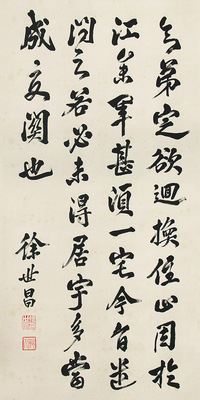 弟定欲迴換住止因於
江軍甚須一宅今
問之若必未得居宇多當
成交關也
徐世昌